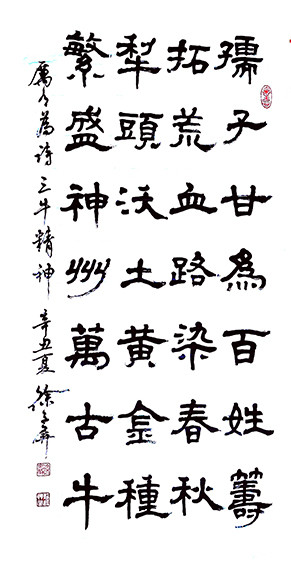 孺子甘為百姓籌
拓荒血路染春秋
犁頭沃土黃金種
繁盛神州萬古牛
為詩三牛精神 辛丑夏 徐